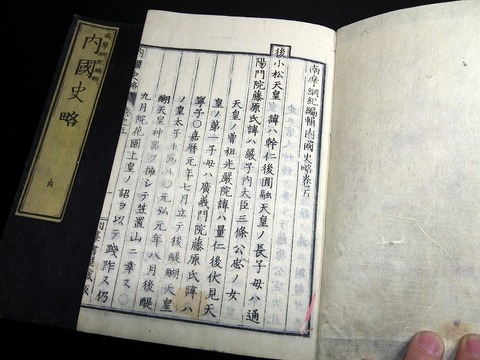 南摩綱紀編輯内國史略卷五
後小松天皇
諱ハ幹仁後圓融天皇ノ長子母ハ通
陽門院藤原氏諱ハ嚴子内大臣三條公忠ノ女
天皇ノ曾祖光嚴院諱ハ量仁後伏見天
皇ノ第一子母ハ廣義門院藤原氏諱ハ
寧子〇嘉曆元年七月立テ後醍醐天皇
ノ皇太子
元弘元年八月後醍
醐天皇神器ヲ擁シテ笠置山ニ幸ス〇
九月院花園上皇ノ詔ヲ以テ踐祚ス仍
内國史略
卷之五
南摩綱紀編輯
内國史略